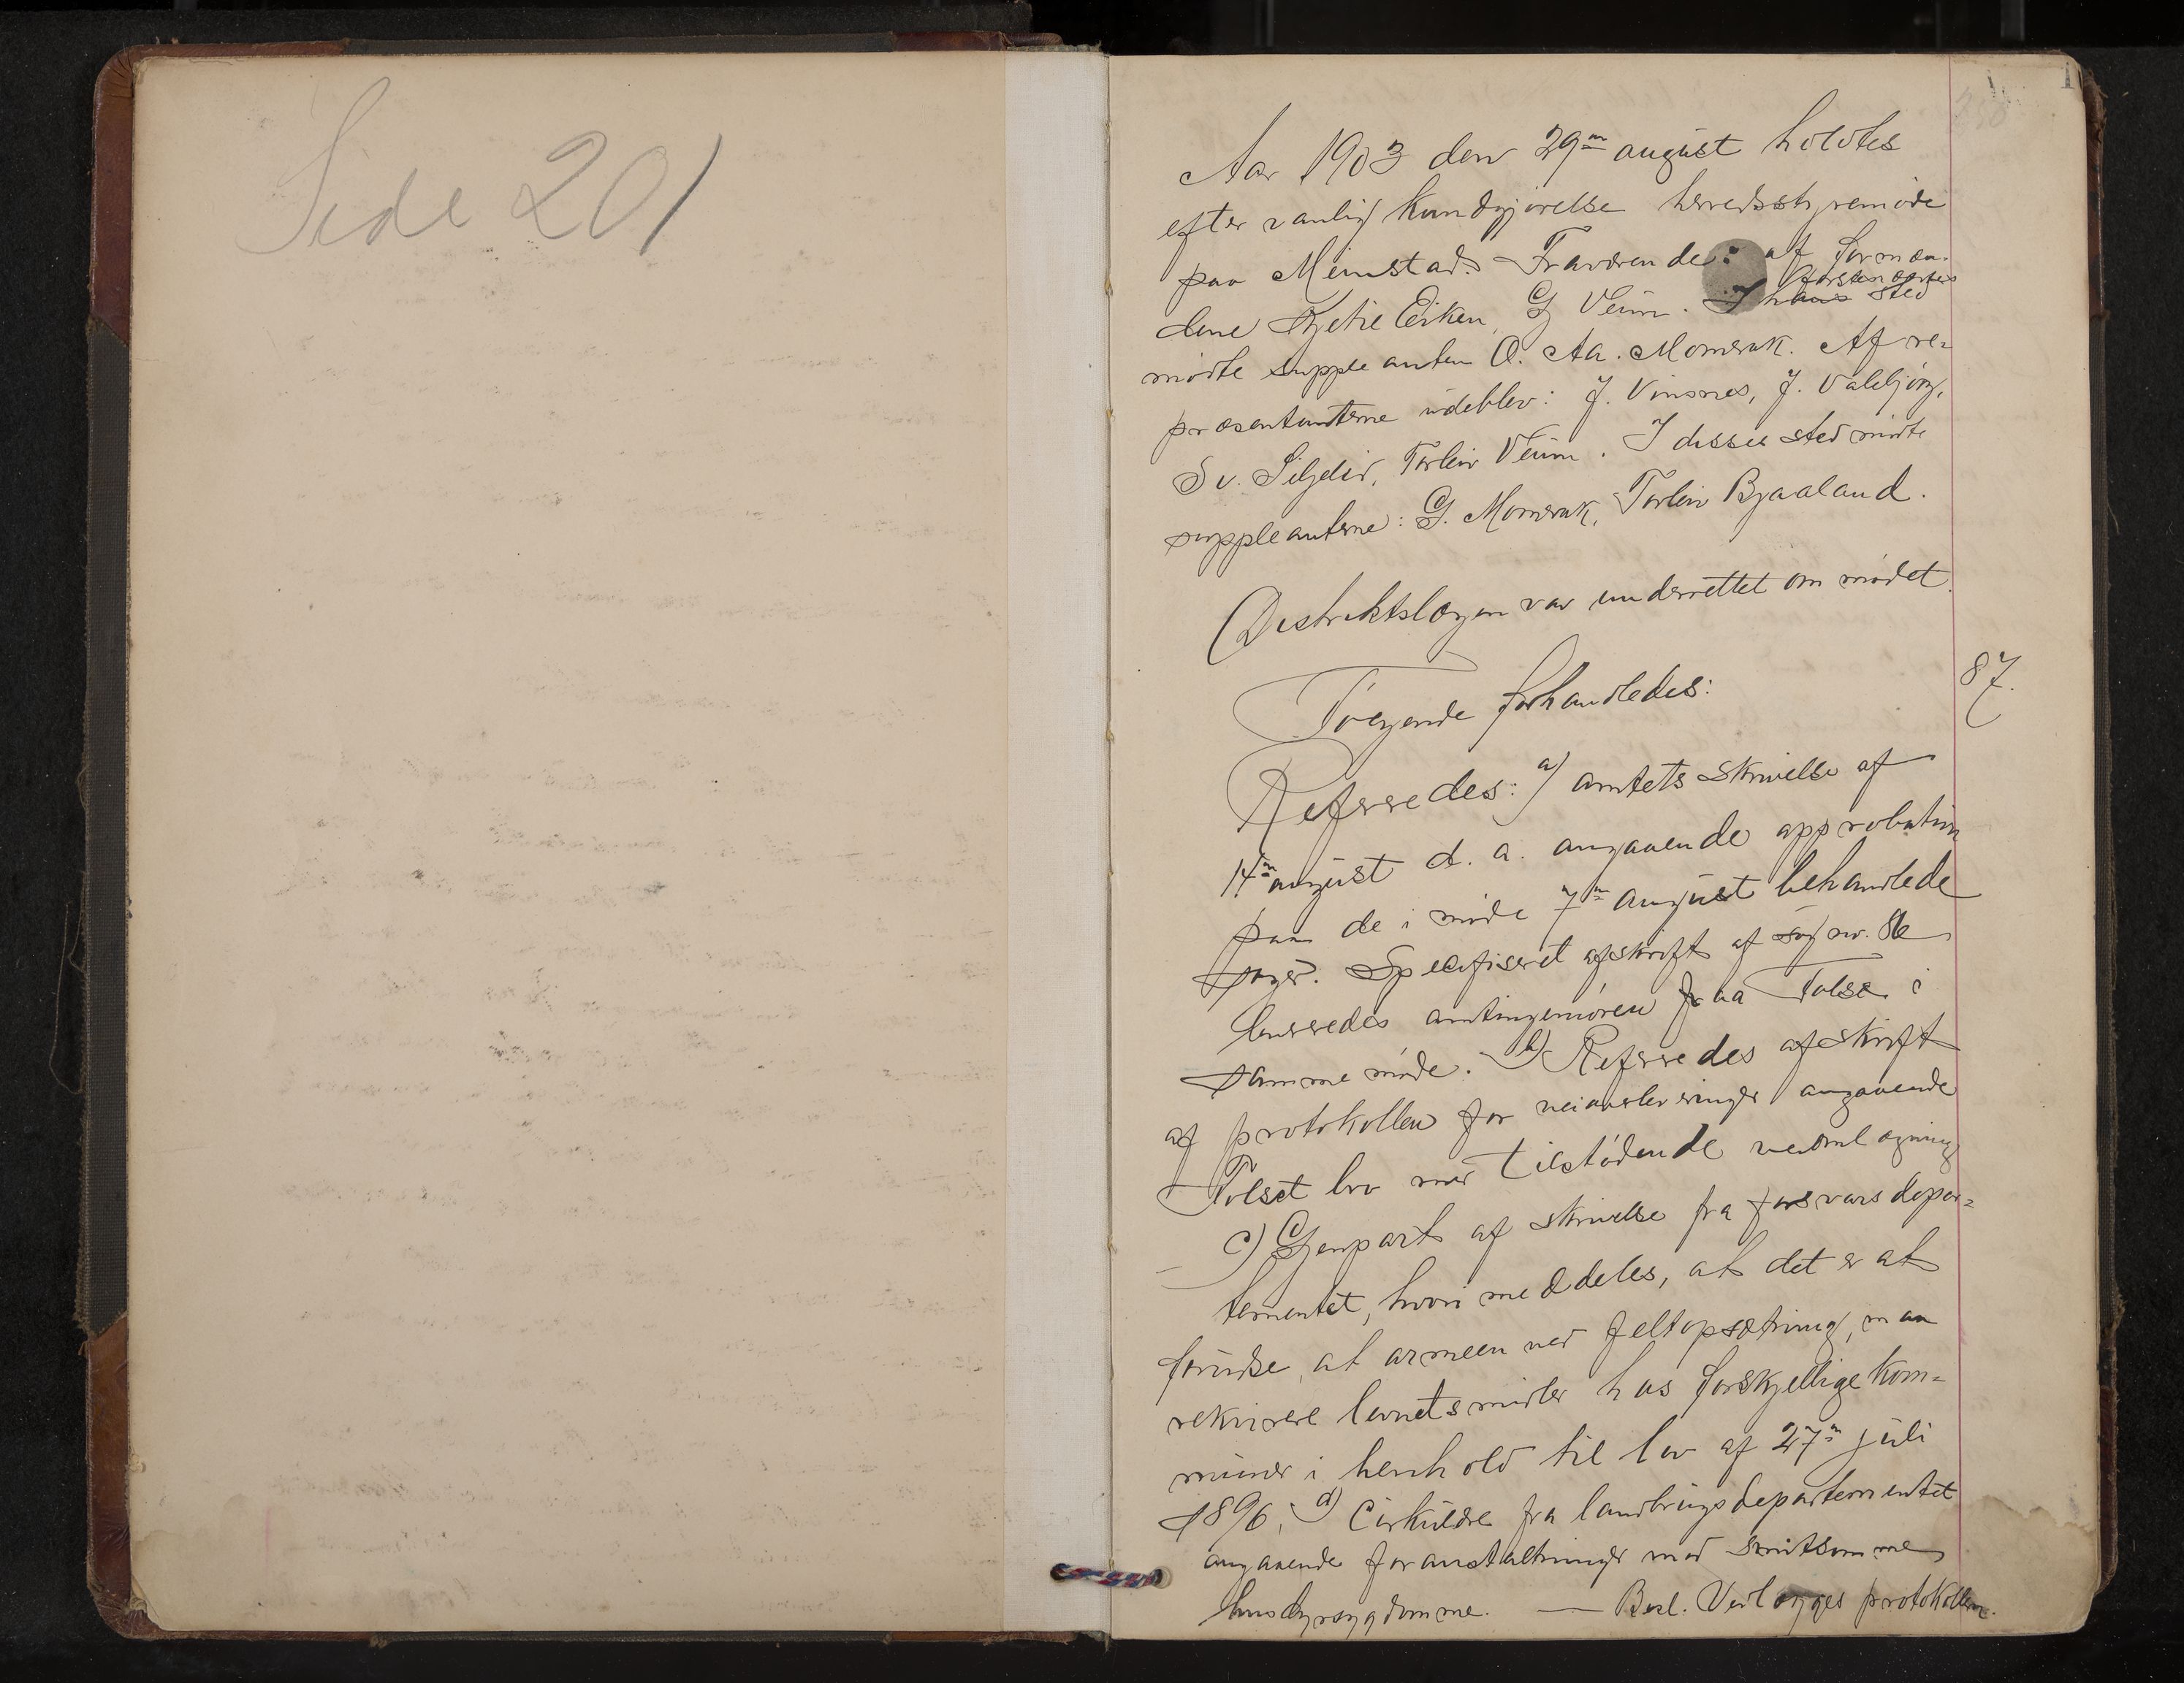 Side 201
1
Aar 1903 den 29m august holdtes
efter vanlig kundgjörelse herredsstyremöde
paa Meinstad. Fraværende: af forman-
dene Kjetil Eiken, G Veum. I hans sted
mödte suppleanten O. Aa. Momrak. Af re=
præsentanterne udeblev: J. Vinsnes, J. Valebjörg,
Sv. Siljelid, Torleiv Veum. I disses sted mödte
suppleanterne: G. Momrak, Torleiv Bjaaland.
Distriktslægen var underrettet om mödet.
Fölgende forhandledes:
87.
Refereredes: a) amtets skrivelse af
14m august d. a. angaaende approbation
paa de i möde 7m august behandlede
sager. Specifiseret afskrift af sag nr. 86
amtingeniören fraa i
samme möde. b) Refereredes afskrift
af protokollen for veiauslevering angaaende
Tolset bro med tilstödende veiomlægning
c) Gjenpart af skrivelse fra forsvarsdepar=
tementet, hvori meddeles, at det er at
forudse, at armeen ved feltopsætning, maa
rekvirere levnetsmidler hos forskjellige kom=
muner i henhold til lov af 27m juli
1896. d) Cirkulære fra landbrugsdepartementet
angaaende foranstaltninger mod smitsomme
husdyrsygdomme. — Besl. Vedlægges protokollen.